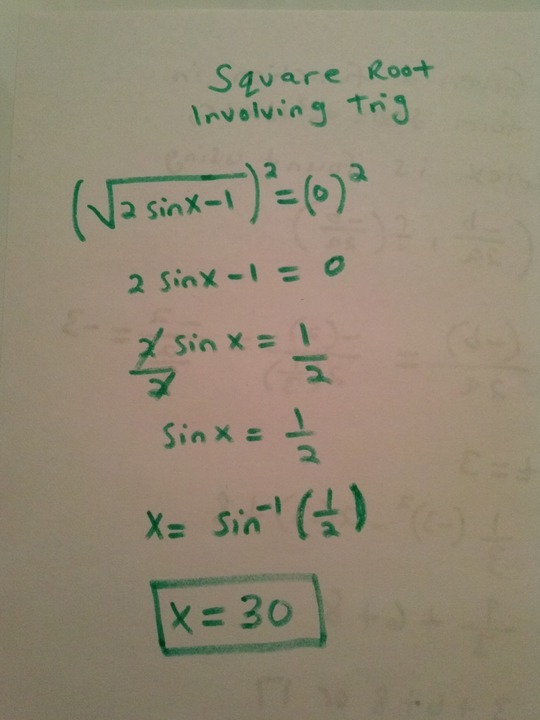 Square Root
Involving Trig
(√2 sinx-1)² = (0)²
2 sinx - 1 = 0
2/2 sin x = 1/2
sinx = 1/2
x = sin⁻¹ (1/2)
x = 30